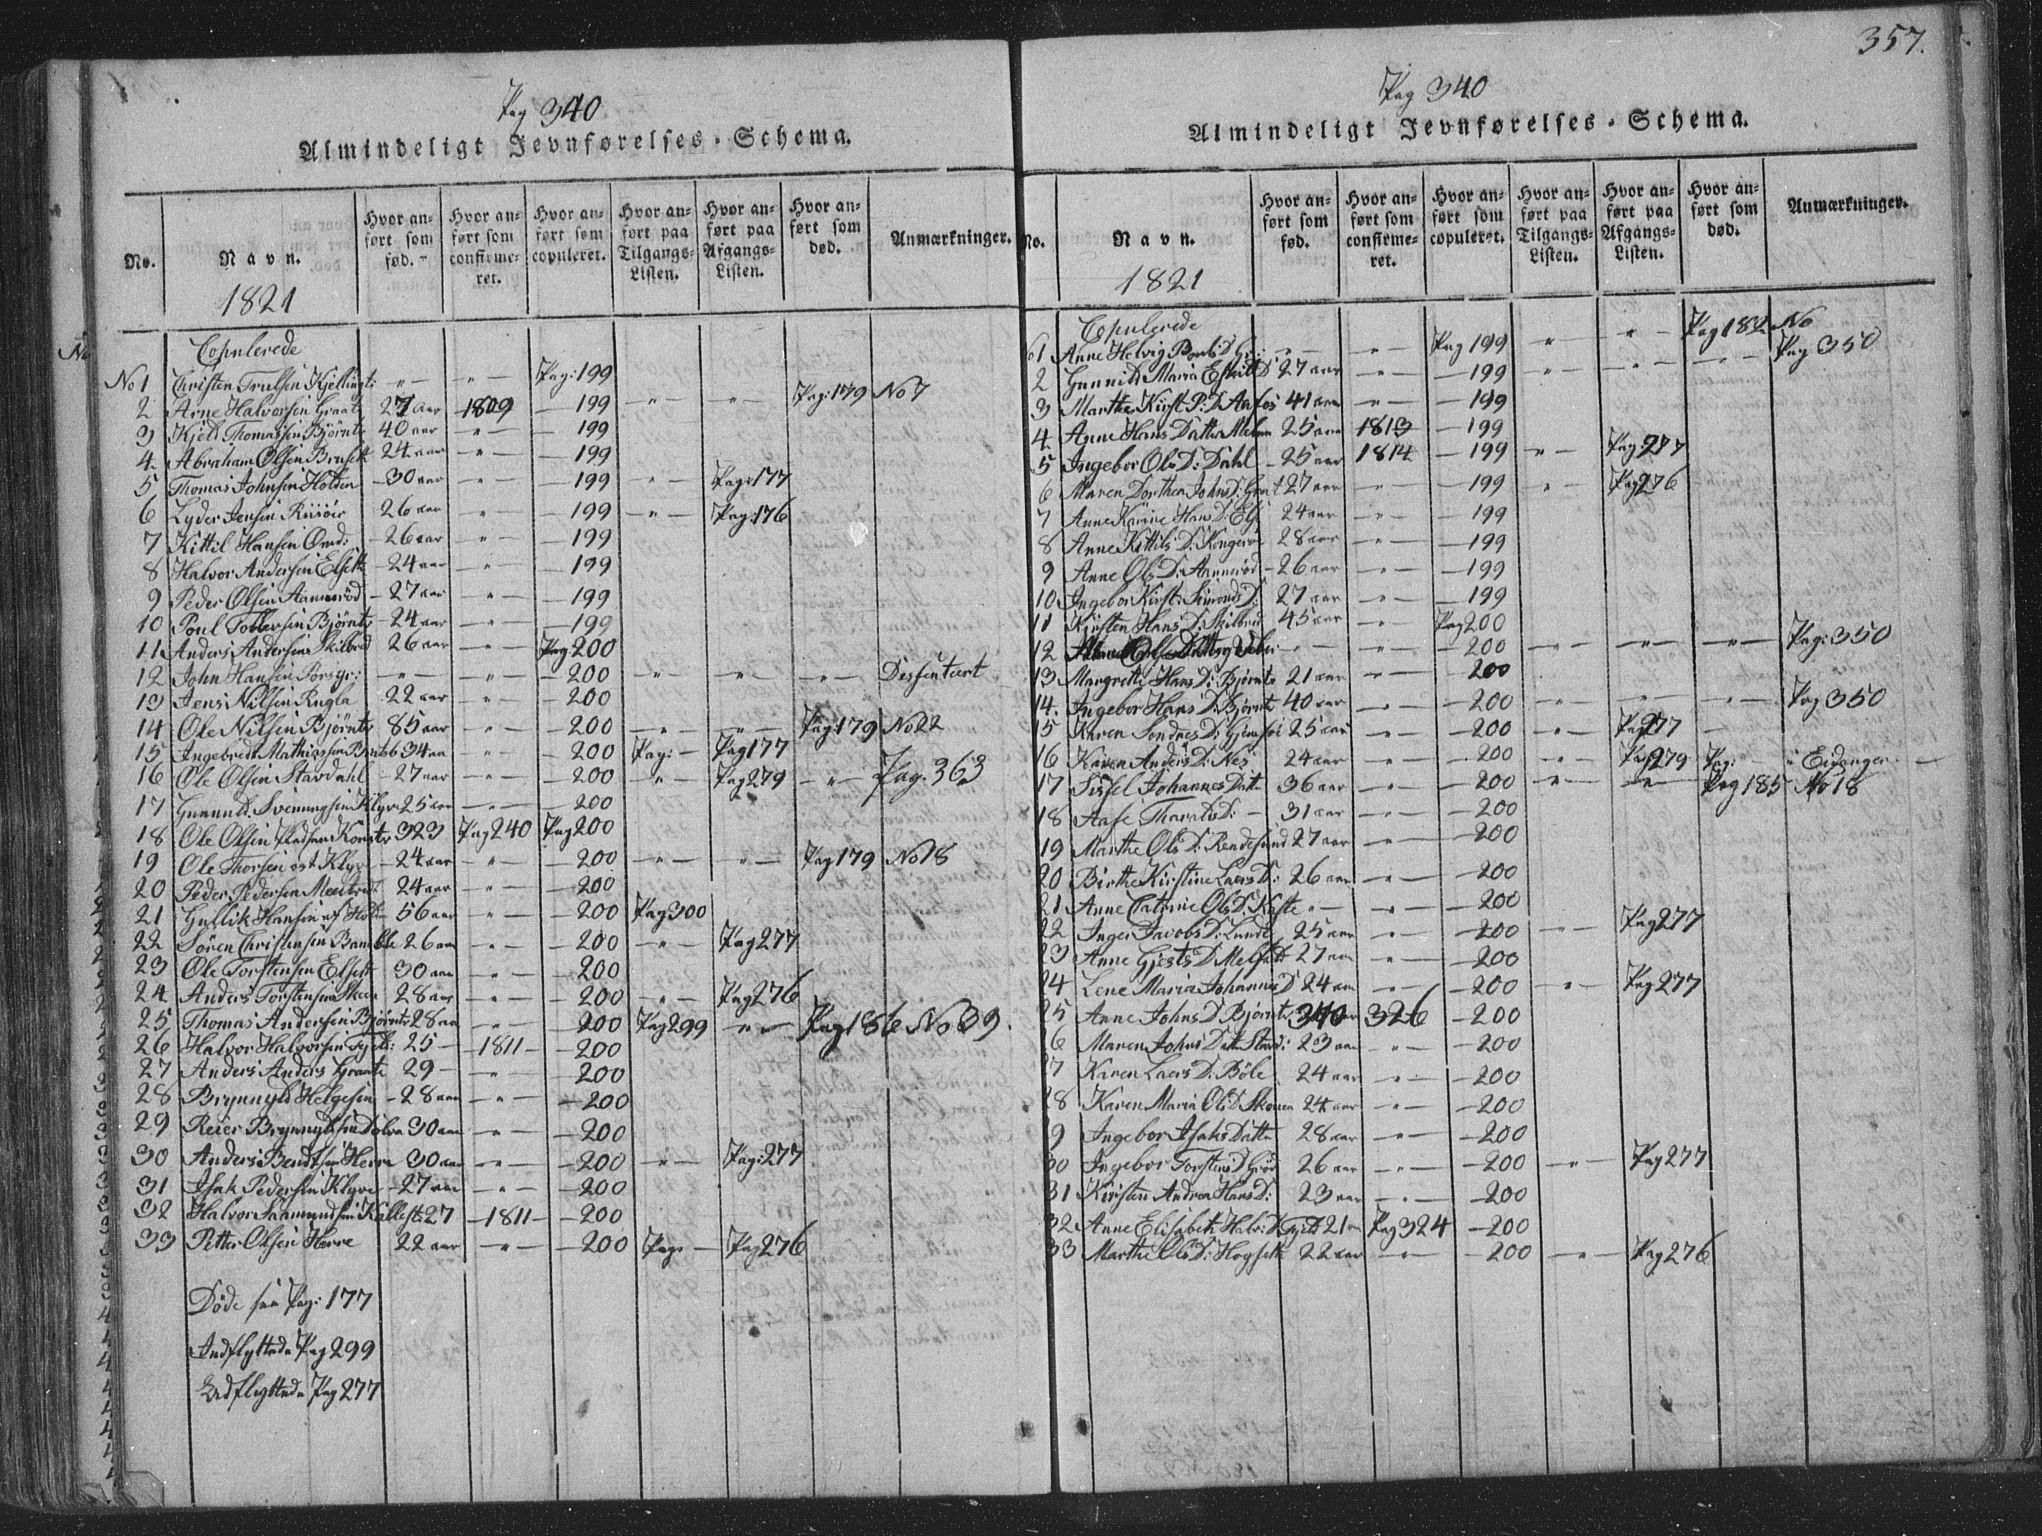 357.
Pag 340
Almindeligt Jevnførelses-Schema.
No.
Navn.
Hvor anført som fød.
Hvor anført som confirmeret.
Hvor anført som copuleret.
Hvor anført paa Tilgangs-Listen.
Hvor anført paa Afgangs-Listen.
Hvor anført som død.
Anmærkninger.
1821
Copulerede
No 1 Christen Trulsen " — " — Pag: 199
2 Arne Halvorsen Graat 27 aar 1809 — 199 " — " — Pag: 179 No 7
3 Kjell Thomassen Bjørnts 40 aar " — 199
4. Abraham Olsen 24 aar " — 199
5 Thomas Johnsen Holten — 30 aar " — 199 " — Pag: 177
6 Lyder Jensen Risøer 26 aar " — 199 " — Pag: 176
7 Kittil Hansen — 26 aar " — 199
8 Halvor Andersen Elsett — 24 aar " — 199
9 Peder Olsen Aannerød — 27 aar " — 199
10 Poul Tollefsen Bjørnts — 24 aar " — 199
11 Anders Andersen Skilbred 26 aar " — Pag 200
12 John Hansen Porsgr: — " — " — 200 " — " — " — Dissentert
13 Jens Nilsen Rugla 22 aar " — 200
14 Ole Nilsen Bjørnts 85 aar " — 200 " — " — Pag 179 No 22
15 Ingebredt Mathissen 34 aar " — 200 Pag: — Pag 177
16 Ole Olsen Stavdahl — 27 aar " — 200 " — Pag 279 " — Pag. 363
17 Gunnuld Svenungsen Klyve 25 aar " — 200
18 Ole Olsen 323 Pag 240 Pag 200
19 Ole Thorsen Klyve — 24 aar " — 200 " — " — Pag 179 No 18
20 Peder Pedersen 24 aar " — 200
21 Gullik Hansen 56 aar " — 200 Pag 300
22 Søren Christensen Bamble 26 aar " — 200 " — Pag 277
23 Ole Torstensen Elsett 30 aar " — 200
24 Anders Torstensen Skeen 28 aar " — 200 " — Pag 276
25 Thomas Andersen Bjørnts 28 aar " — 200 Pag 299 " — Pag 186 No 39.
26 Halvor Halvorsen 25 — 1811 — 200
27 Anders Anders Graate 29 — " — 200
28 Brynnyld Helgesen — 28 aar " — 200
29 Reier Brynnyldsen Dølva 30 aar " — 200
30 Anders Bendtsen Herre 30 aar " — 200 " — Pag: 277
31 Isak Pedersen Klyve — 27 aar " — 200
32 Halvor Saamundsen 27 — 1811 — 200
33 Petter Olsen Herre 22 aar " — 200 Pag: — Pag 276
Døde see Pag: 177
Indflyttede Pag 299
Udflyttede Pag 277
Pag 340
Almindeligt Jevnførelses-Schema.
No.
Navn.
Hvor anført som fød.
Hvor anført som confirmeret.
Hvor anført som copuleret.
Hvor anført paa Tilgangs-Listen.
Hvor anført paa Afgangs-Listen.
Hvor anført som død.
Anmærkninger.
1821
Copulerede
1 Anne Helvig " — " — Pag 199 " — " — Pag 182 No
2 Gunnild Maria 27 aar " — 199 " — " — " — Pag 350
3 Marthe Kirst. P: D. Aafos 41 aar " — 199
4. Anne Hans Datter 25 aar 1813 — 199
5 Ingebor Ols D: Dahl — 25 aar 1814 — 199 " — Pag 277
6 Maren Dorthea Johns D: Graat 27 aar " — 199 " — Pag 276
7 Anne Karine Hans D: 24 aar " — 199
8 Anne Kittils D: 28 aar " — 199
9 Anne Ols D: Aannerød — 26 aar " — 199
10 Ingebor Kirst: Simonds D: 27 aar " — 199
11 Kirsten Hans D: Skilbred 45 aar " — Pag 200
12 " — " — 200 " — " — " — Pag: 350
13 Margrethe Hans D: Bjørnts 21 aar " — 200
14. Ingebor Hans D: Bjørnts 40 aar " — 200 " — " — Pag 350
15 Karen Sondres D: 25 aar " — 200 " — Pag 177
16 Karen Anders D: Nes 24 aar " — 200 " — Pag 279 Pag: — i Eidanger —
17 Sissel Johannes Datter 36 aar " — 200 " — " — Pag 185 No 18
18 Aase Tharalds D: — 31 aar " — 200
19 Marthe Ols D: 27 aar " — 200
20 Birthe Kirstine Laers D: 26 aar " — 200
21 Anne Catrine Ols D: " — " — 200
22 Inger Jacobs D: Lunde 25 aar " — 200 " — Pag 277
23 Anne Gjests D. 27 aar " — 200
24 Lene Maria Johannes D 24 aar " — 200 " — Pag 277
25 Anne Johns D Bjørnts 340 326 — 200
26 Maren Johns Datter 23 aar " — 200
27 Karen Laers D. Bøle 24 aar " — 200
28 Karen Maria Ols D. 24 aar " — 200
29 Ingebor Isaks Datter 28 aar " — 200
30 Ingebor Torstens D 26 aar " — 200 " — Pag 277
31 Kirsten Andrea Hans D: 23 aar " — 200
32 Anne Elisabeth Halv: D 21 aar Pag 324 — 200
33 Marthe Ols D: Hogseth 22 aar " — 200 " — Pag 276